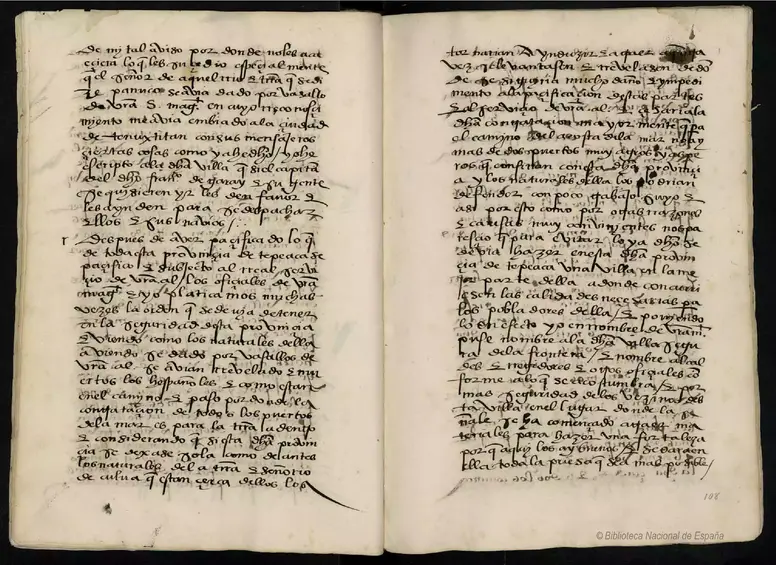 de mi tal aviso por donde no les aca
eciera lo que les sucedio especialmente
qe el señor de aquel rrio e trra qe se di
ze panuco se avia dado por vasallo
de vra S. magt en cuyo rreconosci
miento me avia embiado a la ciudad
de tenuxtitan con sus mensajeros
ciertas cosas como ya he dho / yo he
escripto a la dha villa que si el capitan
del dho franco de garay e su gente
se quisieren yr les den favor e
les ayuden para se despachar
ellos e sus navios /.
Despues de aver pacificado lo qe
de toda esta provincia de tepeaca se
pacifico e subjecto al rreal servi
cio de vra al. los oficiales de vra
magt e yo platicamos muchas
vezes la orden qe se devia de tener
en la seguridad desta provincia
e viendo como los naturales della
aviendo se dado por vasallos de
vra al. se avian rrevelado e mu
ertos los hespañoles e como estan
en el camino e paso por donde la
contratacion de todos los puertos
de la mar es para la trra adentro
e considerando qe si esta dha provin
cia se dexase sola como de antes
los naturales de la trra e señorio
de culua qe estan cerca dellos los
tornarian a ynduzir e a quer a otra
vez se levantasen e rrevelasen de do
de se siguiria mucho daño e ympedi
mento a la pacificacion destas partes
e al servicio de vra al. e cesaria la
dha contratacion mayormente qe pa
el camino de la costa de la mar no ay
mas de dos puertos muy agros y aspe
ros qe confinan con esta dha provinci
a y los naturales della los podrian
defender con poco trabajo suyo e
asi por esto como por otras razones
e causas muy convinientes nos pa
rescio qe para evitar lo ya dho se
devia hazer en esta dha provin
cia de tepeaca una villa en la me
jor parte della a donde concurri
esen las calidades nescesarias pa
los pobladores della / e poniendo
lo en efecto yo en nombre de vra mt
puse nombre a la dha villa segu
ra de la frontera e nombre alcal
des e rregidores e otros oficiales co
forme a lo qe se acostumbra / e por
mas seguridad de los vezinos des
ta villa en el lugar donde la se
ñale se ha comencado a traer ma
teriales para hazer una fortaleza
por qe aqui los ay buenos / e se dara en
ella toda la priesa qe sea mas posible /
108
© Biblioteca Nacional de España